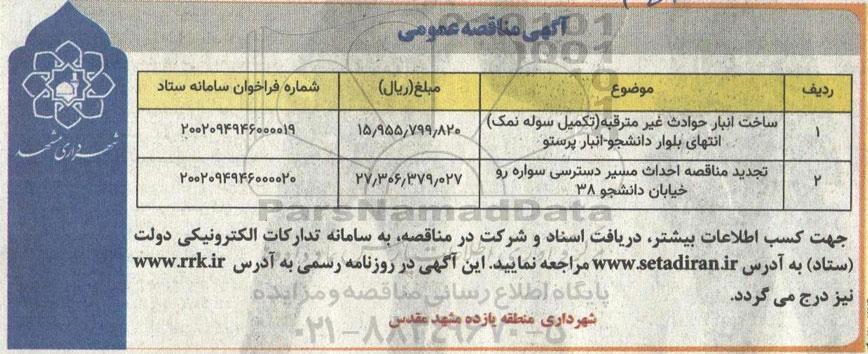 آگهی مناقصه عمومی
ردیف موضوع مبلغ(ریال) شماره فراخوان سامانه ستاد
۱ ساخت انبار حوادث غیر مترقبه(تکمیل سوله نمک) ۱۵٫۹۵۵٫۷۹۹٫۸۲۰ ۲۰۰۲۰۹۴۹۴۶۰۰۰۰۱۹
انتهای بلوار دانشجو-انبار پرستو
۲ تجدید مناقصه احداث مسیر دسترسی سواره رو ۲۷٫۳۰۶٫۳۷۹٫۰۲۷ ۲۰۰۲۰۹۴۹۴۶۰۰۰۰۲۰
خیابان دانشجو ۳۸
جهت کسب اطلاعات بیشتر، دریافت اسناد و شرکت در مناقصه، به سامانه تدارکات الکترونیکی دولت
(ستاد) به آدرس www.setadiran.ir مراجعه نمایید. این آگهی در روزنامه رسمی به آدرس www.rrk.ir
نیز درج می گردد.
شهرداری منطقه یازده مشهد مقدس
شهرداری مشهد
ParsNamadData
پایگاه اطلاع رسانی مناقصه و مزایده
۰۲۱-۸۸۳۴۹۶۷۰-۵